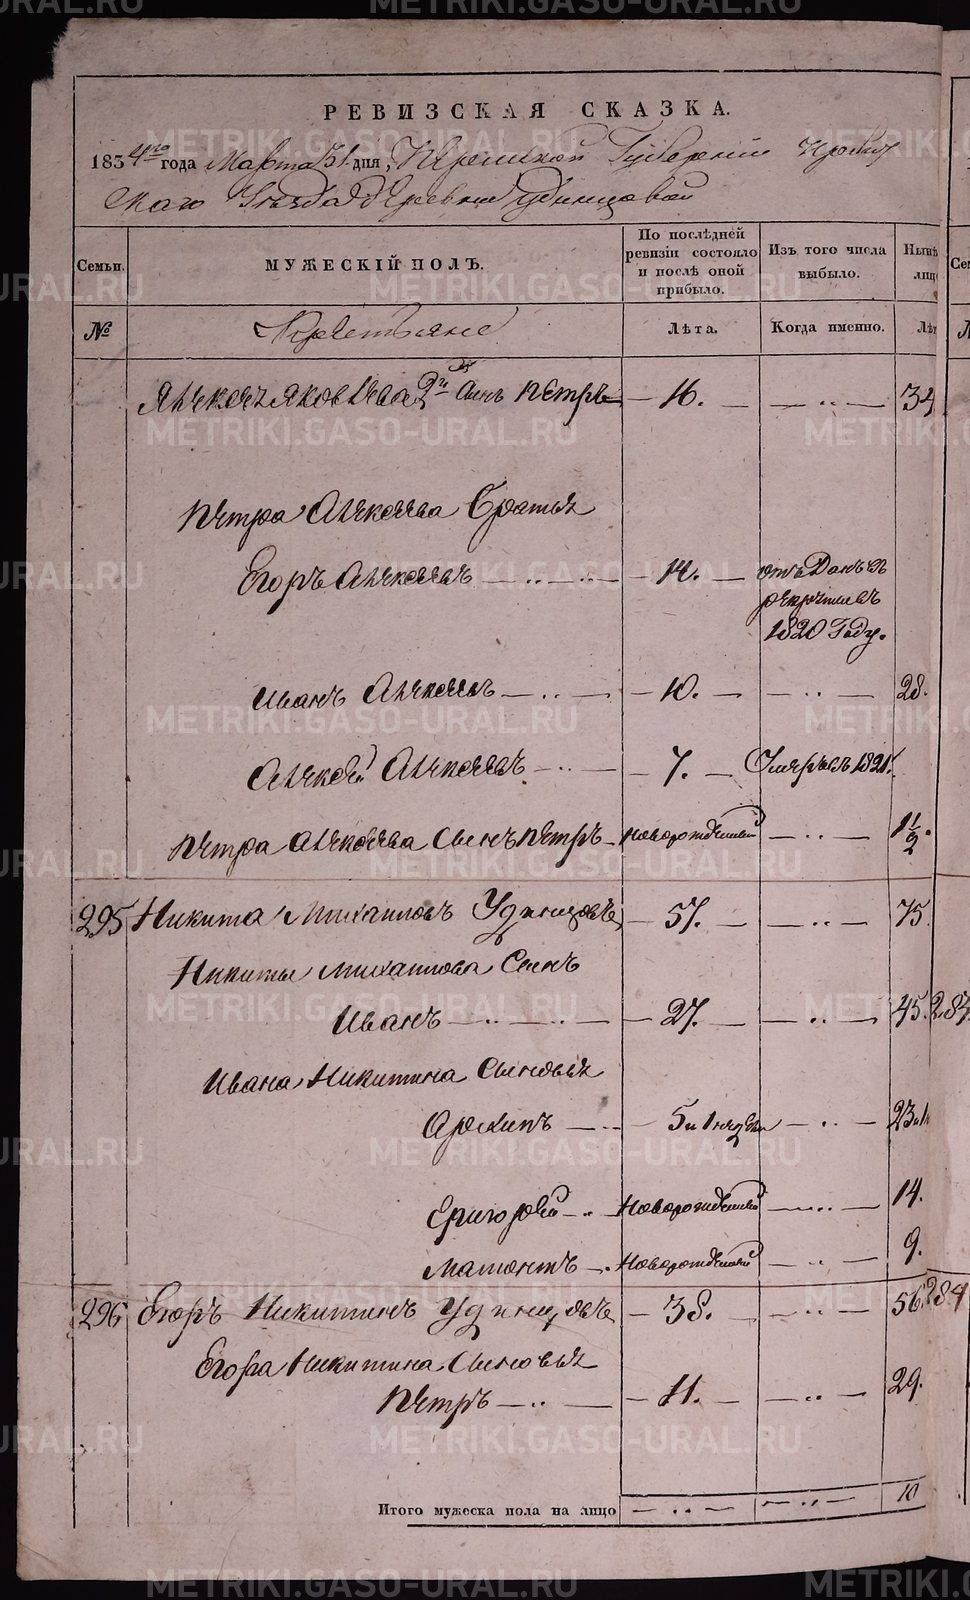 РЕВИЗСКАЯ СКАЗКА.
1834го года Марта 31 дня, Пермской Губернии Ирбит
скаго Уезда Деревни Удинцовой
Семьи. МУЖЕСКІЙ ПОЛЪ. По послѣдней ревизіи состояло и послѣ оной прибыло. Изъ того числа выбыло. Нынѣ лиц
№ Крестьяне Лѣта. Когда именно. Лѣт
Алексея Яковлева 2й Сынъ Петръ — 16. — — „ — 34
Петра Алексеева Братья
Егоръ Алексеевъ — „ — „ — 14. — отъ Данъ въ
рекруты въ
1820 Году.
Иванъ Алексеевъ — „ — — 10. — — „ — 28.
Алексей Алексеевъ — „ — — 7. — Умеръ въ 1821.
Петра Алексеева Сынъ Петръ — Новорожденный — „ — 1 1/2.
295 Никита Михаиловъ Удинцовъ — 57. — — „ — 75.
Никиты Михаилова Сынъ
Иванъ — „ — „ — — 27. — — „ — 45. 284.
Ивана Никитина Сыновья
Архипъ — „ — 5 и 1 недели — „ — 23 и 1
Григорей — „ — Новорожденный — „ — 14.
Мамонтъ — „ Новорожденный — „ — 9.
296 Егоръ Никитинъ Удинцовъ — 38. — — „ — 56. 284
Егора Никитина Сыновья
Петръ — „ — — 11. — — „ — 29.
Итого мужеска пола на лицо — „ — — „ — 10
METRIKI.GASO-URAL.RU